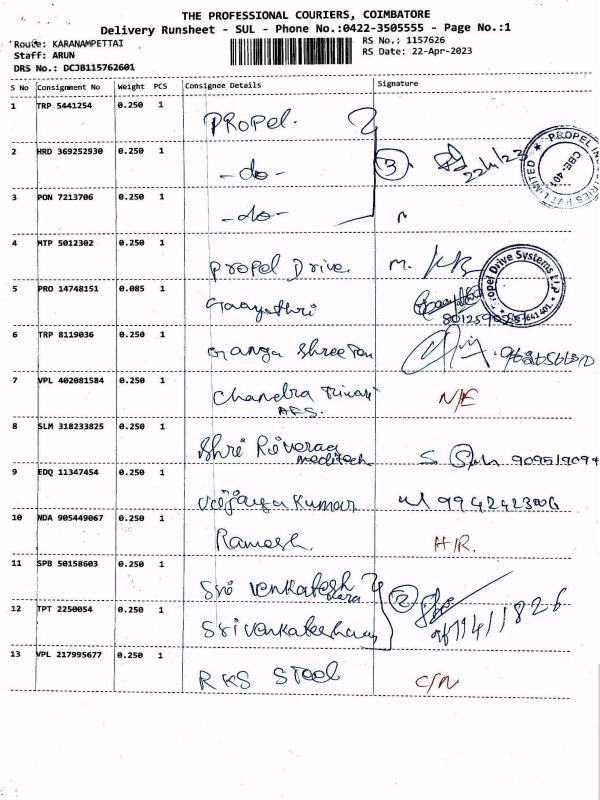 THE PROFESSIONAL COURIERS, COIMBATORE
Delivery Runsheet - SUL - Phone No.:0422-3505555 - Page No.:1
Route: KARANAMPETTAI
Staff: ARUN
DRS No.: DCJB115762601
RS No.: 1157626
RS Date: 22-Apr-2023
S No Consignment No Weight PCS Consignee Details Signature
1 TRP 5441254 0.250 1 Propel.
2 HRD 369252930 0.250 1 -do- 3 22/4/23
PROPEL INDUSTRIES PVT LIMITED ★ CBE-401
3 PON 7213706 0.250 1 -do-
4 MTP 5012302 0.250 1 Propel Drive. M.
Propel Drive Systems LLP 641 401
5 PRO 14748151 0.085 1 Gaayathri
6 TRP 8119036 0.250 1 Ganga Shree
7 VPL 402081584 0.250 1 Chandra N/E
8 SLM 318233825 0.250 1 Shri meditech S. 909519094
9 EDQ 11347454 0.250 1 Vijaya Kumar
10 NDA 905449067 0.250 1 Ramesh. H/R.
11 SPB 50158603 0.250 1 Sri Venkatesh 2
12 TPT 2250054 0.250 1 Sri
13 VPL 217995677 0.250 1 RKS Steel C/N